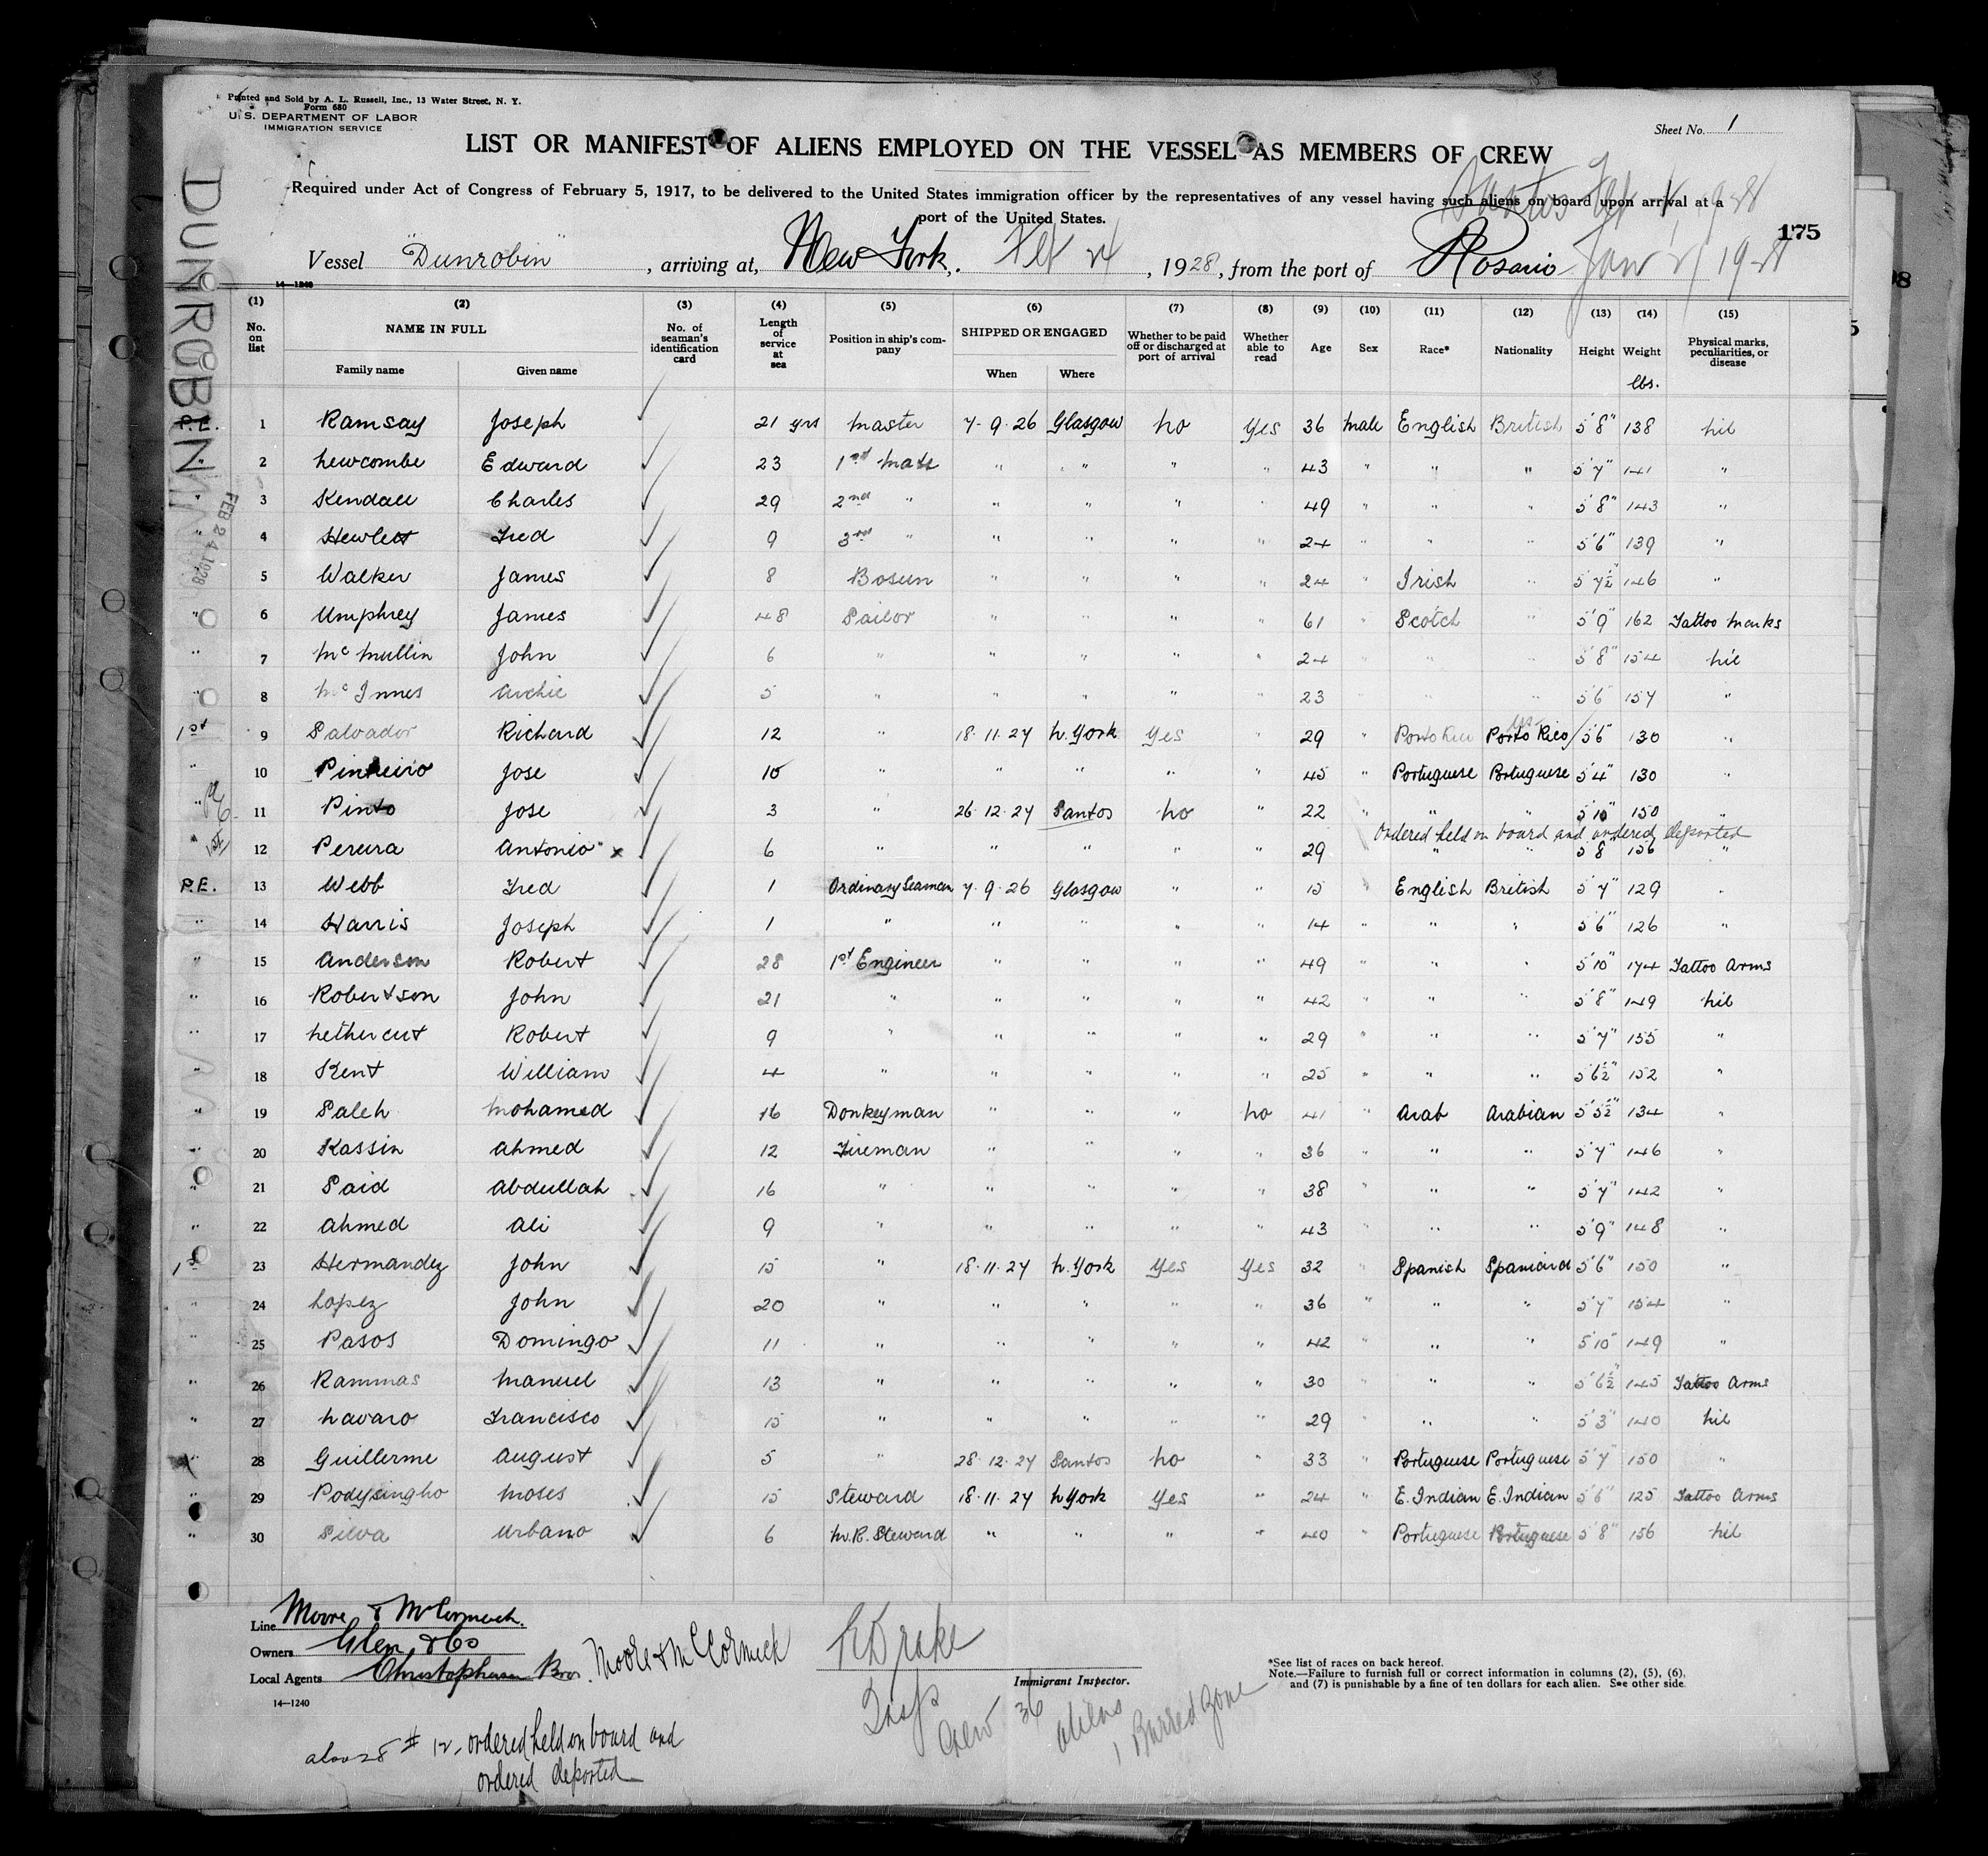 Printed and Sold by A. L. Russell, Inc., 13 Water Street, N. Y.
Form 680
U. S. DEPARTMENT OF LABOR
IMMIGRATION SERVICE
Sheet No. 1
LIST OR MANIFEST OF ALIENS EMPLOYED ON THE VESSEL AS MEMBERS OF CREW
Required under Act of Congress of February 5, 1917, to be delivered to the United States immigration officer by the representatives of any vessel having such aliens on board upon arrival at a
port of the United States.
Santos Feb 1, 1928
175
Vessel "Dunrobin", arriving at, New York, Feb 24, 1928, from the port of Rosario Jan 21 1928
14—1240
DUNROBIN
FEB 24 1928
(1) (2) (3) (4) (5) (6) (7) (8) (9) (10) (11) (12) (13) (14) (15)
No. on list NAME IN FULL No. of seaman's identification card Length of service at sea Position in ship's company SHIPPED OR ENGAGED Whether to be paid off or discharged at port of arrival Whether able to read Age Sex Race* Nationality Height Weight Physical marks, peculiarities, or disease
Family name Given name When Where lbs.
P.E. 1 Ramsay Joseph 21 yrs Master 7-9-26 Glasgow No Yes 36 Male English British 5'8" 138 Nil
" 2 Newcombe Edward 23 1st Mate " " " " 43 " " " 5'7" 141 "
" 3 Kendall Charles 29 2nd " " " " " 49 " " " 5'8" 143 "
" 4 Hewlett Fred 9 3rd " " " " " 24 " " " 5'6" 139 "
5 Walker James 8 Bosun " " " " 24 " Irish " 5'7½" 146 "
" 6 Umphrey James 48 Sailor " " " " 61 " Scotch " 5'9" 162 Tattoo Marks
" 7 McMullin John 6 " " " " " 24 " " " 5'8" 154 Nil
" 8 McInnes Archie 5 " " " " " 23 " " " 5'6" 157 "
1st 9 Salvador Richard 12 " 18.11.27 N. York Yes " 29 " Porto Rico Porto Rico 5'6" 130 "
" 10 Pinheiro Jose 10 " " " " " 45 " Portuguese Portuguese 5'4" 130 "
" 11 Pinto Jose 3 " 26.12.27 Santos No " 22 " " " 5'10" 150 "
Ordered held on board and ordered deported
" 12 Pereira Antonio x 6 " " " " " 29 " " 5'8" 156 "
P.E. 13 Webb Fred 1 Ordinary Seaman 7.9.26 Glasgow " " 15 " English British 5'7" 129 "
" 14 Harris Joseph 1 " " " " " 14 " " " 5'6" 126 "
" 15 Anderson Robert 28 1st Engineer " " " " 49 " " " 5'10" 174 Tattoo Arms
" 16 Robertson John 21 " " " " " 42 " " " 5'8" 149 Nil
" 17 Nethercut Robert 9 " " " " " 29 " " " 5'7" 155 "
" 18 Kent William 4 " " " " " 25 " " " 5'6½" 152 "
" 19 Saleh Mohamed 16 Donkeyman " " " No 41 " Arab Arabian 5'5½" 134 "
" 20 Kassin Ahmed 12 Fireman " " " " 36 " " " 5'7" 146 "
" 21 Said Abdullah 16 " " " " " 38 " " " 5'7" 142 "
" 22 Ahmed Ali 9 " " " " " 43 " " " 5'9" 148 "
1st 23 Hermandez John 15 " 18.11.27 N. York Yes Yes 32 " Spanish Spaniard 5'6" 150 "
" 24 Lopez John 20 " " " " " 36 " " " 5'7" 154 "
" 25 Pasos Domingo 11 " " " " " 42 " " " 5'10" 149 "
" 26 Rammas Manuel 13 " " " " " 30 " " " 5'6½" 145 Tattoo Arms
" 27 Navaro Francisco 15 " " " " " 29 " " " 5'3" 140 Nil
" 28 Guillerme August 5 " 28.12.27 Santos No " 33 " Portuguese Portuguese 5'7" 150 "
" 29 Podysingho Moses 15 Steward 18.11.27 N York Yes " 24 " E. Indian E. Indian 5'6" 125 Tattoo Arms
" 30 Silva Urbano 6 M.R. Steward " " " " 40 " Portuguese Portuguese 5'8" 156 Nil
Line Moore & McCormack.
Owners Glen & Co
Local Agents Christopherson Bros. Moore & McCormick
R Drake
Insp
Immigrant Inspector.
*See list of races on back hereof.
Note.—Failure to furnish full or correct information in columns (2), (5), (6).
and (7) is punishable by a fine of ten dollars for each alien. See other side.
14—1240
Crew 36 aliens
1 Barred Zone
also 28 # 12, ordered held on board and
ordered deported